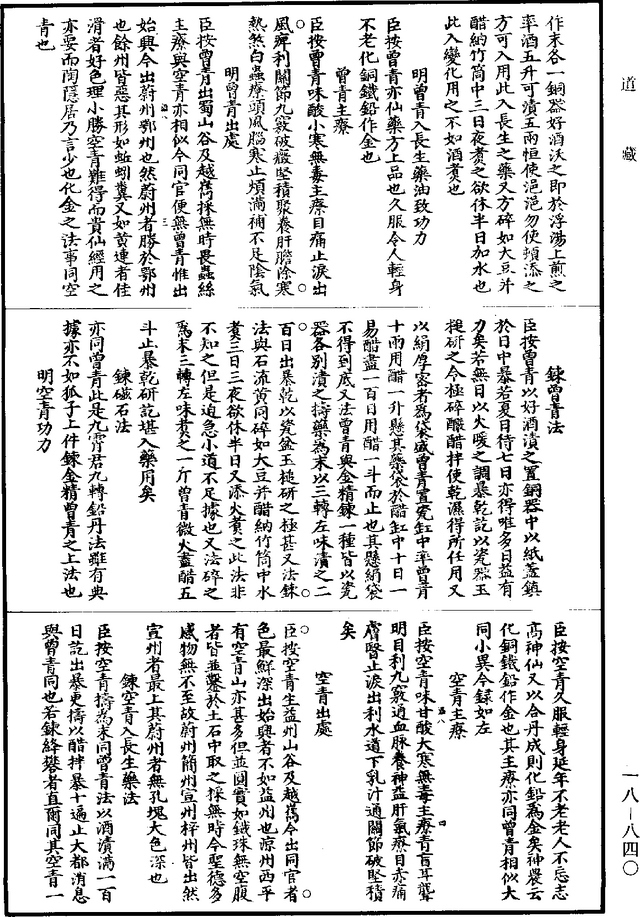 道藏
一八—八四〇
作末各一銅器好酒沃之即於浮蕩上煎之
率酒五升可漬五兩恒使浥浥勿使頓添之
方可入用此入長生之藥又方碎如大豆并
醋納竹筒中三日夜煑之欲休半日加水也
此入變化用之不如酒煑也
明曾青入長生藥油致功力
臣按曾青亦仙藥方上品也久服令人輕身
不老化銅鐵鉛作金也
曾青主療
臣按曾青味酸小寒無毒主療目痛止淚出
風痺利關節九竅破癥堅積聚養肝膽除寒
熱煞白蟲療頭風腦寒止煩滿補不足陰氣
明曾青出處
臣按曾青出蜀山谷及越嶲採無時畏蟲絲
主療與空青亦相似今同官便無曾青惟出
始興今出蔚州鄂州也然蔚州者勝於鄂州
也餘州皆惡其形如蚯蚓糞又如黃連者佳
滑者好色理小勝空青難得而貴仙經用之
亦要而陶隱居乃言少也化金之法事同空
青也
鍊曾青法
臣按曾青以好酒漬之置銅器中以紙蓋鎮
於日中暴若夏日待七日亦得唯多日益有
力矣若無日以火暖之調暴乾訖以瓷器玉
槌研之令極碎釅醋拌使乾濕得所任用又
以絹厚密者為袋盛曾青置瓷缸中率曾青
十兩用醋一升懸其藥袋於醋缸中十日一
易醋盡一百日用醋一斗而止也其懸絹袋
不得到底又法曾青與金精鍊一種皆以瓷
器各別漬之擣藥為末以三轉左味漬之二
百日出暴乾以瓷盆玉槌研之極甚又法鍊
法與石流黃同碎如大豆并醋納竹筒中水
煮三日三夜欲休半日又添火煮之此法非
不知之但是迫急小道不足據也又法碎之
為末三轉左味煮之一斤曾青微火盡醋五
斗止暴乾研訖堪入藥用矣
鍊磁石法
亦同曾青此是九霄君九轉鉛丹法雖有典
據亦不如狐子上件鍊金精曾青之上法也
明空青功力
臣按空青久服輕身延年不老老人不忘志
高神仙又以合丹成則化鉛為金矣神農云
化銅鐵鉛作金也其主療亦同曾青相似大
同小異今錄如左
空青主療
臣按空青味甘酸大寒無毒主療青盲耳聾
明目利九竅通血脉養神益肝氣療目赤痛
膚瞖止淚出利水道下乳汁通關節破堅積
矣
空青出處
臣按空青生益州山谷及越嶲今出同官者
色最鮮深出始興者不如益州也涼州西平
有空青山亦甚多但並圓實如鐵珠無空腹
者皆並鑿於土石中取之採無時今聖德多
感物無不至故蔚州簡州宣州梓州皆出然
宣州者最上其蔚州者無孔塊大色深也
鍊空青入長生藥法
臣按空青擣為末同曾青法以酒漬滿一百
日訖出暴更擣以醋拌暴十遍止大都消息
與曾青同也若鍊絳礬者直爾同其空青一